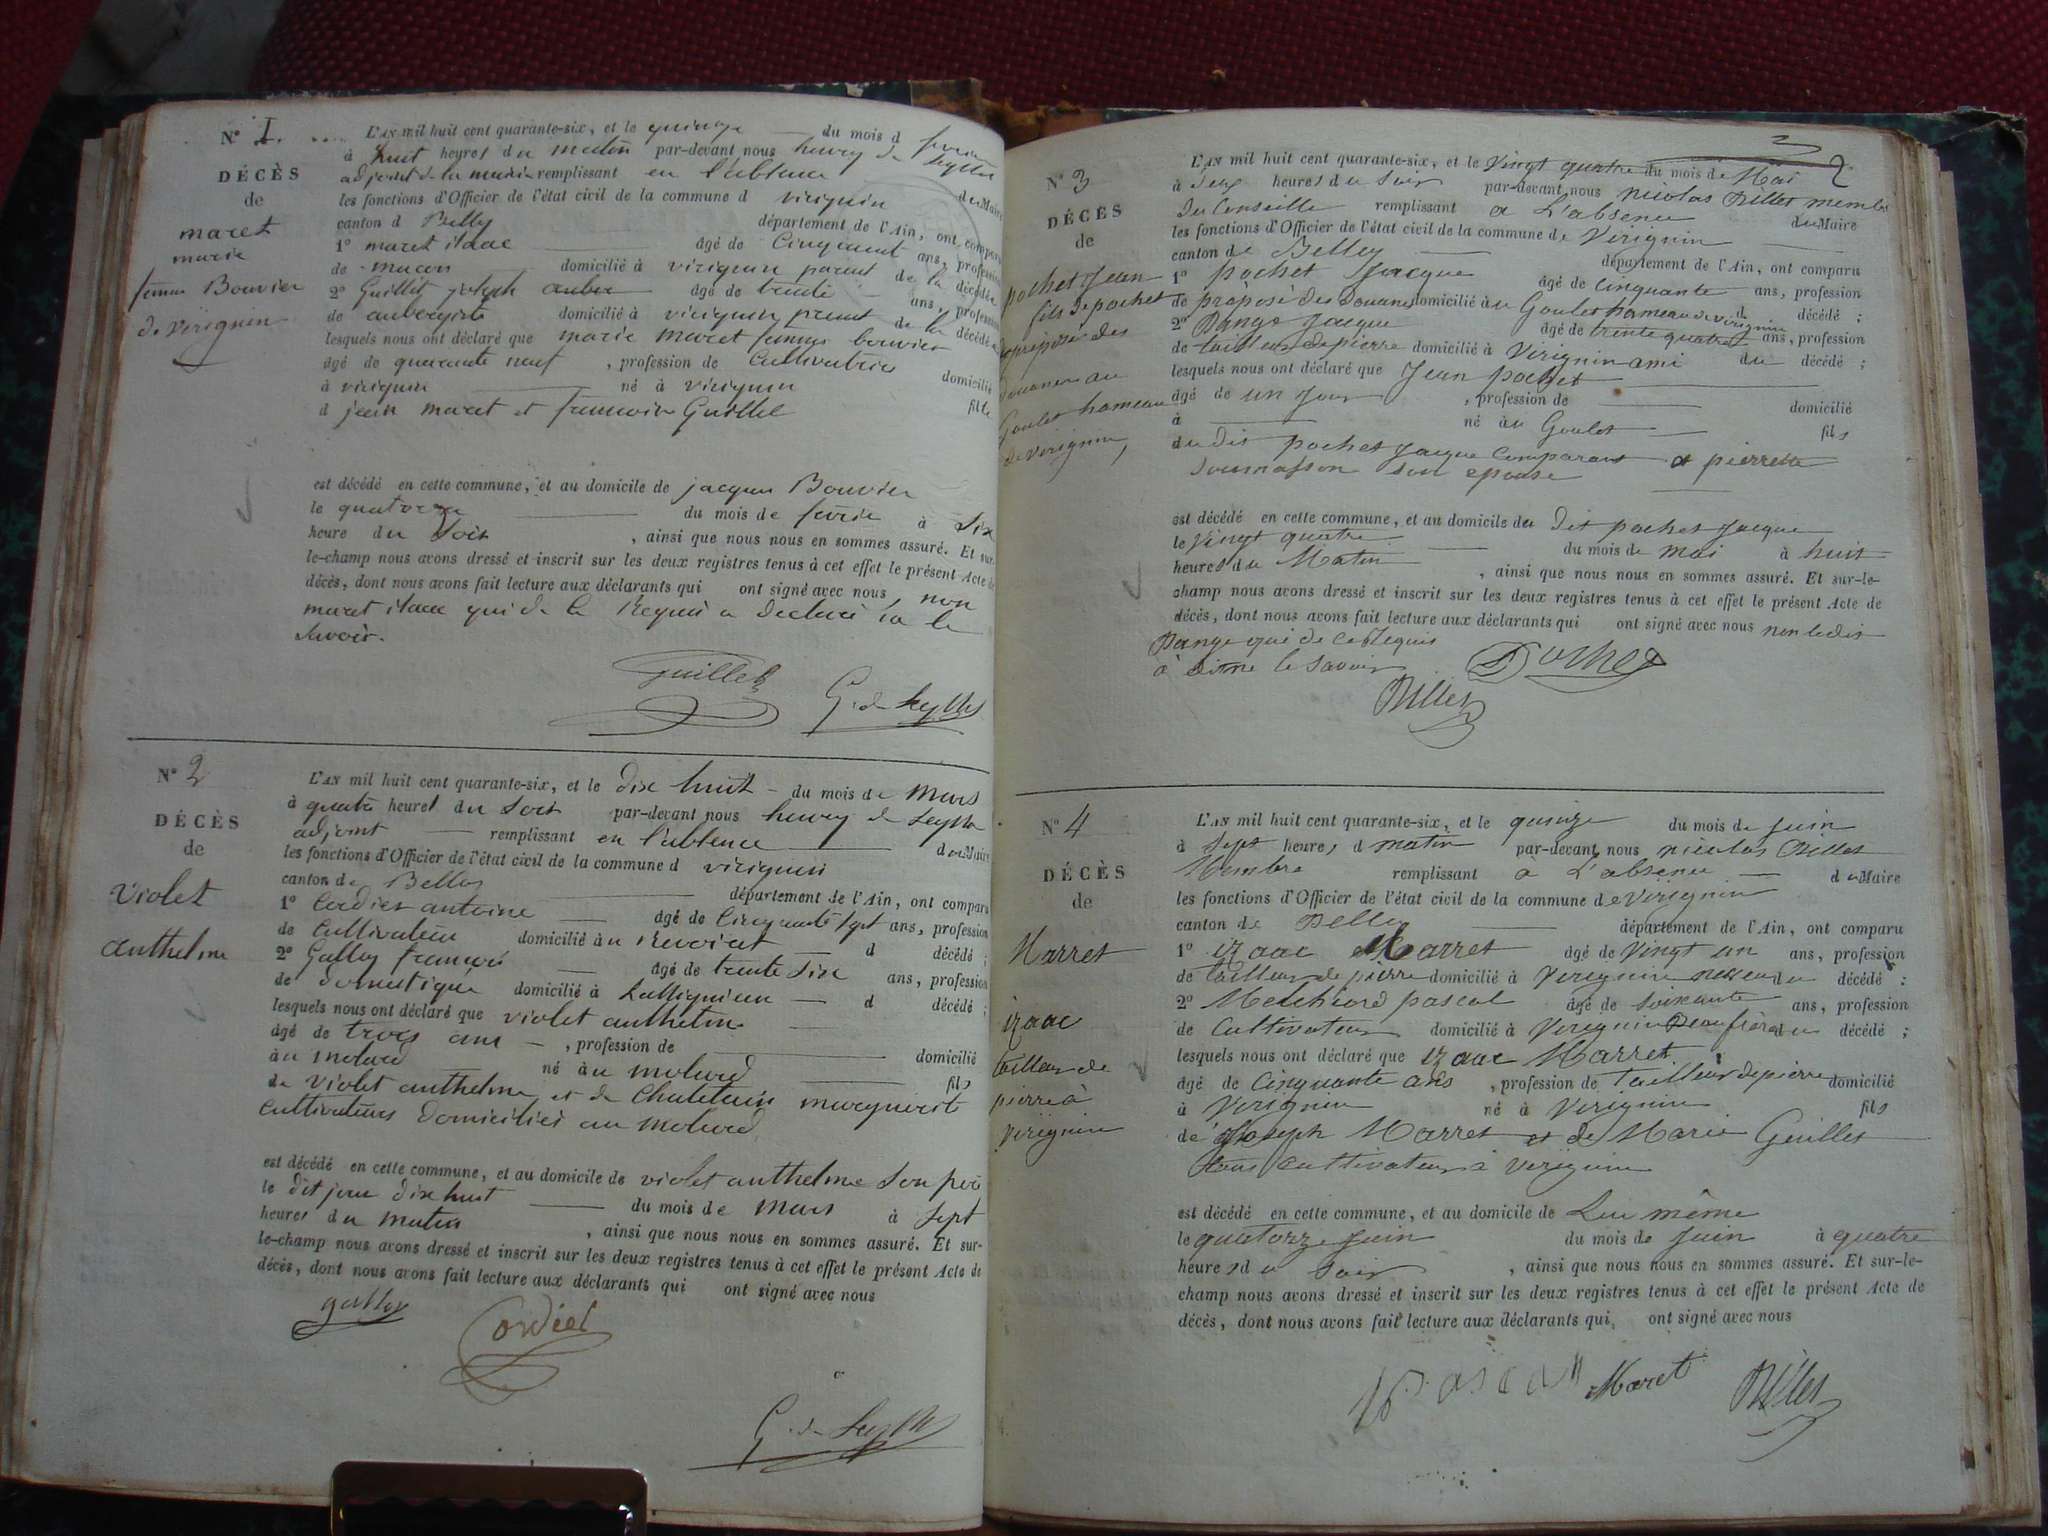 N° 1.
DÉCÈS
de
maret
marie
femme Bouvier
de virignin
L'AN mil huit cent quarante-six, et le quinze du mois d fevrier
à huit heures du matin par-devant nous henry de Seyssel
adjoint de la mairie remplissant en l'absence du Maire
les fonctions d'Officier de l'état civil de la commune d virignin
canton d Belley département de l'Ain, ont comparu
1° maret isaac âgé de Cinquant ans, profession
de maçon domicilié à virignin parent de la décédée
2° Guillet joseph âgé de trente ans, profession
de aubergiste domicilié à virignin parent de la décédée
lesquels nous ont déclaré que marie maret femme bouvier
âgé de quarante neuf , profession de Cultivatrice domicilié
à virignin né à virignin fille
d jean maret et francoise Guillet
est décédé en cette commune, et au domicile de jacques Bouvier
le quatorze du mois de fevrier à Six
heure du Soir , ainsi que nous nous en sommes assuré. Et sur-
le-champ nous avons dressé et inscrit sur les deux registres tenus à cet effet le présent Acte de
décès, dont nous avons fait lecture aux déclarants qui ont signé avec nous, non
maret isaac qui de ce Requis a déclaré ne le
Savoir.
Guillet
G. de Seyssel
N° 2
DÉCÈS
de
violet
anthelme
L'AN mil huit cent quarante-six, et le dix huit du mois de mars
à quatre heures du Soir par-devant nous henry de Seyssel
adjoint remplissant en l'absence du Maire
les fonctions d'Officier de l'état civil de la commune d virignin
canton de Belley département de l'Ain, ont comparu
1° Cordier antoine âgé de Cinquante sept ans, profession
de Cultivateur domicilié à d décédé ;
2° Galley francois âgé de trente Six ans, profession
de domestique domicilié à d décédé ;
lesquels nous ont déclaré que violet anthelme
âgé de trois ans , profession de domicilié
au molard né au molard fils
de violet anthelme et de Chatelain marguerite
Cultivateurs domiciliés au molard
est décédé en cette commune, et au domicile de violet anthelme Son père
le dit jour dix huit du mois de mars à Sept
heures du matin , ainsi que nous nous en sommes assuré. Et sur-
le-champ nous avons dressé et inscrit sur les deux registres tenus à cet effet le présent Acte de
décès, dont nous avons fait lecture aux déclarants qui ont signé avec nous
galley
Cordier
G. de Seyssel
2
N° 3
DÉCÈS
de
pochet Jean
fils de pochet
préposé des
douanes au
Goulet hameau
de virignin
L'AN mil huit cent quarante-six, et le vingt quatre du mois de Mai
à deux heures du Soir par-devant nous nicolas Billet membre
du Conseille remplissant a L'absence du Maire
les fonctions d'Officier de l'état civil de la commune de Virignin
canton de Belley département de l'Ain, ont comparu
1° pochet Jacque âgé de cinquante ans, profession
de préposé des douanes domicilié au Goulet hameau de virignin d décédé ;
2° Pange Jacque âgé de trente quatre ans, profession
de tailleur de pierre domicilié à Virignin ami du décédé ;
lesquels nous ont déclaré que Jean pochet
âgé de un Jour , profession de domicilié
à né au Goulet fils
du dit pochet Jacque Comparant et pierrette
son epouse
est décédé en cette commune, et au domicile du dit pochet Jacque
le vingt quatre du mois de mai à huit
heures du Matin , ainsi que nous nous en sommes assuré. Et sur-le-
champ nous avons dressé et inscrit sur les deux registres tenus à cet effet le présent Acte de
décès, dont nous avons fait lecture aux déclarants qui ont signé avec nous non ledit
Pange qui de ce Requis
à dit ne le savoir
Pochet
Billet
N° 4
DÉCÈS
de
Marret
izaac
tailleur de
pierre à
Virignin
L'AN mil huit cent quarante-six, et le quinze du mois de Juin
à Sept heures d matin par-devant nous nicolas Billet
Membre remplissant à L'absence du Maire
les fonctions d'Officier de l'état civil de la commune de Virignin
canton de Belley département de l'Ain, ont comparu
1° izaac Marret âgé de vingt un ans, profession
de tailleur de pierre domicilié à Virignin neveu du décédé ;
2° Melchiord pascal âgé de Soixante ans, profession
de Cultivateur domicilié à Virignin Beau frère du décédé ;
lesquels nous ont déclaré que izaac Marret
âgé de Cinquante ans , profession de Tailleur de pierre domicilié
à Virignin né à Virignin fils
de Joseph Marret et de Marie Guillet
tous Cultivateur à Virignin
est décédé en cette commune, et au domicile de Lui même
le quatorze Juin du mois de Juin à quatre
heures du Soir , ainsi que nous nous en sommes assuré. Et sur-le-
champ nous avons dressé et inscrit sur les deux registres tenus à cet effet le présent Acte de
décès, dont nous avons fait lecture aux déclarants qui, ont signé avec nous
Pascal Maret Billet